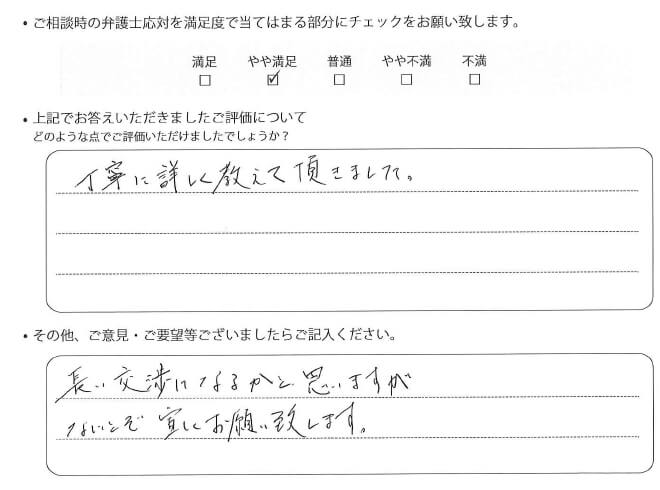 ・ご相談時の弁護士応対を満足度で当てはまる部分にチェックをお願い致します。
満足 やや満足 普通 やや不満 不満
□ ☑ □ □ □
・上記でお答えいただきましたご評価について
どのような点でご評価いただけましたでしょうか？
丁寧に詳しく教えて頂きました。
・その他、ご意見・ご要望等ございましたらご記入ください。
長い交渉になるかと思いますが
宜しくお願い致します。